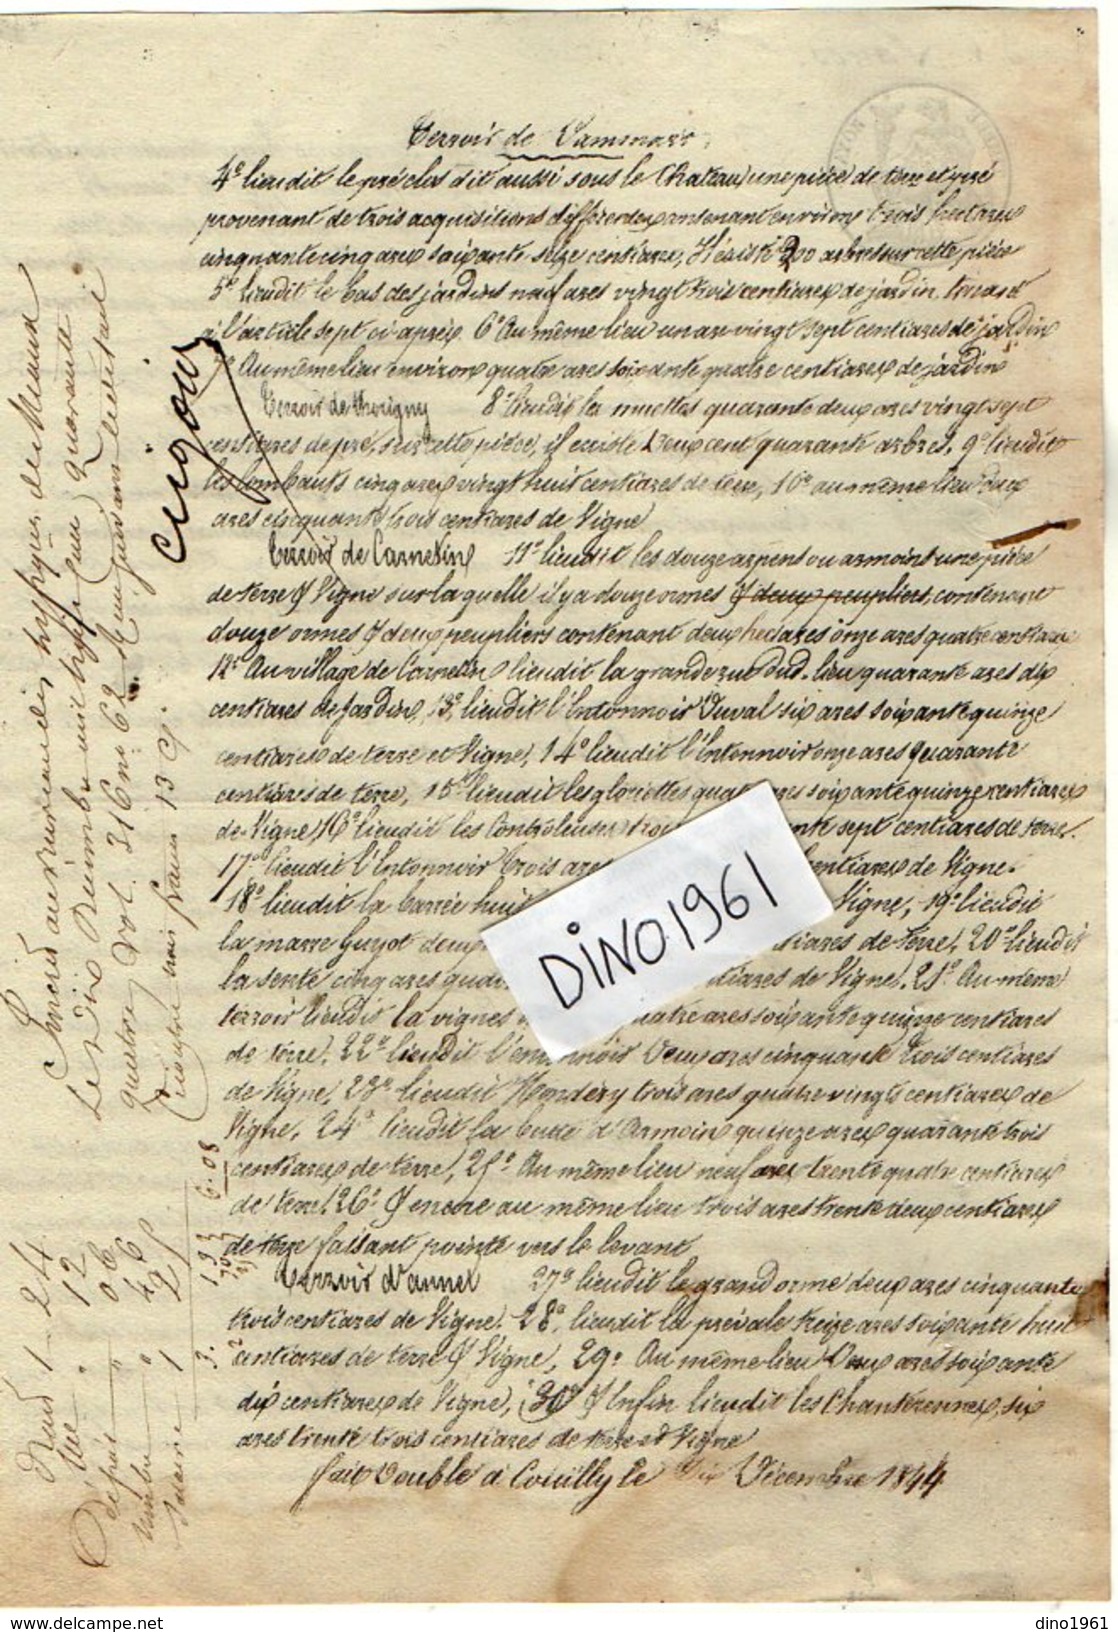 Terroir de Dammart.
4º lieudit le pré clos dit aussi sous le Chateau une pièce de terre et pré
provenant de trois acquisitions différentes contenant environ trois hectares
cinquante cinq ares soixante seize centiares, Il éxiste 200 arbres sur cette pièce
5º lieudit le bas des jardins neuf ares vingt trois centiares de jardin tenant
à l'article sept ci après 6º Au même lieu un are vingt sept centiares de jardin
7º Au même lieu environ quatre ares soixante quatre centiares de jardin
Terroir de Thorigny 8º lieudit les muettes quarante deux ares vingt sept
centiares de pré, sur cette pièce, il existe Deux cent quarante arbres, 9º lieudit
les Combauts cinq ares vingt huit centiares de terre, 10º au même lieu Deux
ares cinquante trois centiares de Vigne
Terroir de Carnetin 11º lieudit les douze arpens ou armoins une pièce
de terre & Vigne sur laquelle il y a douze ormes & deux peupliers, contenant
douze ormes & deux peupliers contenant deux hectares onze ares quatre centiares
12º Au village de Carnetin lieudit la grande rue dud. lieu quarante ares dix
centiares de Jardin, 13º lieudit l'Entonnoir Duval six ares soixante quinze
centiares de terre et Vigne, 14º lieudit l'Entonnoir onze ares quarante
centiares de terre, 15º lieudit les gloriettes soixante quinze centiares
de Vigne, 16º lieudit les sept centiares de terre.
17º lieudit l'Entonnoir trois ares centiares de Vigne.
18º lieudit la Carrée huit Vigne, 19º lieudit
la marre Guyot deux de terre, 20º lieudit
la sente cinq ares de Vigne. 21º Au même
terroir lieudit la vignes ares soixante quinze centiares
de terre, 22º lieudit l'entonnoir Deux ares cinquante trois centiares
de Vigne, 23º lieudit trois ares quatre vingts centiares de
Vigne, 24º lieudit la bute d'Armoin quinze ares quarante trois
centiares de terre, 25º Au même lieu neuf ares trente quatre centiares
de terre, 26º & encore au même lieu trois ares trente deux centiares
de terre faisant pointe vers le levant
Terroir d'annet 27º lieudit le grand orme deux ares cinquante
trois centiares de Vigne. 28º lieudit la prevale treize ares soixante huit
centiares de terre & Vigne, 29º Au même lieu Deux ares soixante
dix centiares de Vigne, 30º & Enfin lieudit les Chanterennes, six
ares trente trois centiares de terre et Vigne
fait Double à Couilly le Dix Décembre 1844
au bureau des hypoteques de Meaux
Le Dix Décembre mil huit cent quarante
quatre, Vol. 316 nº 62
trois francs 13 c.
1 - 24
12
06
46
1 25
3. 193
6.08
DINO1961
dino1961